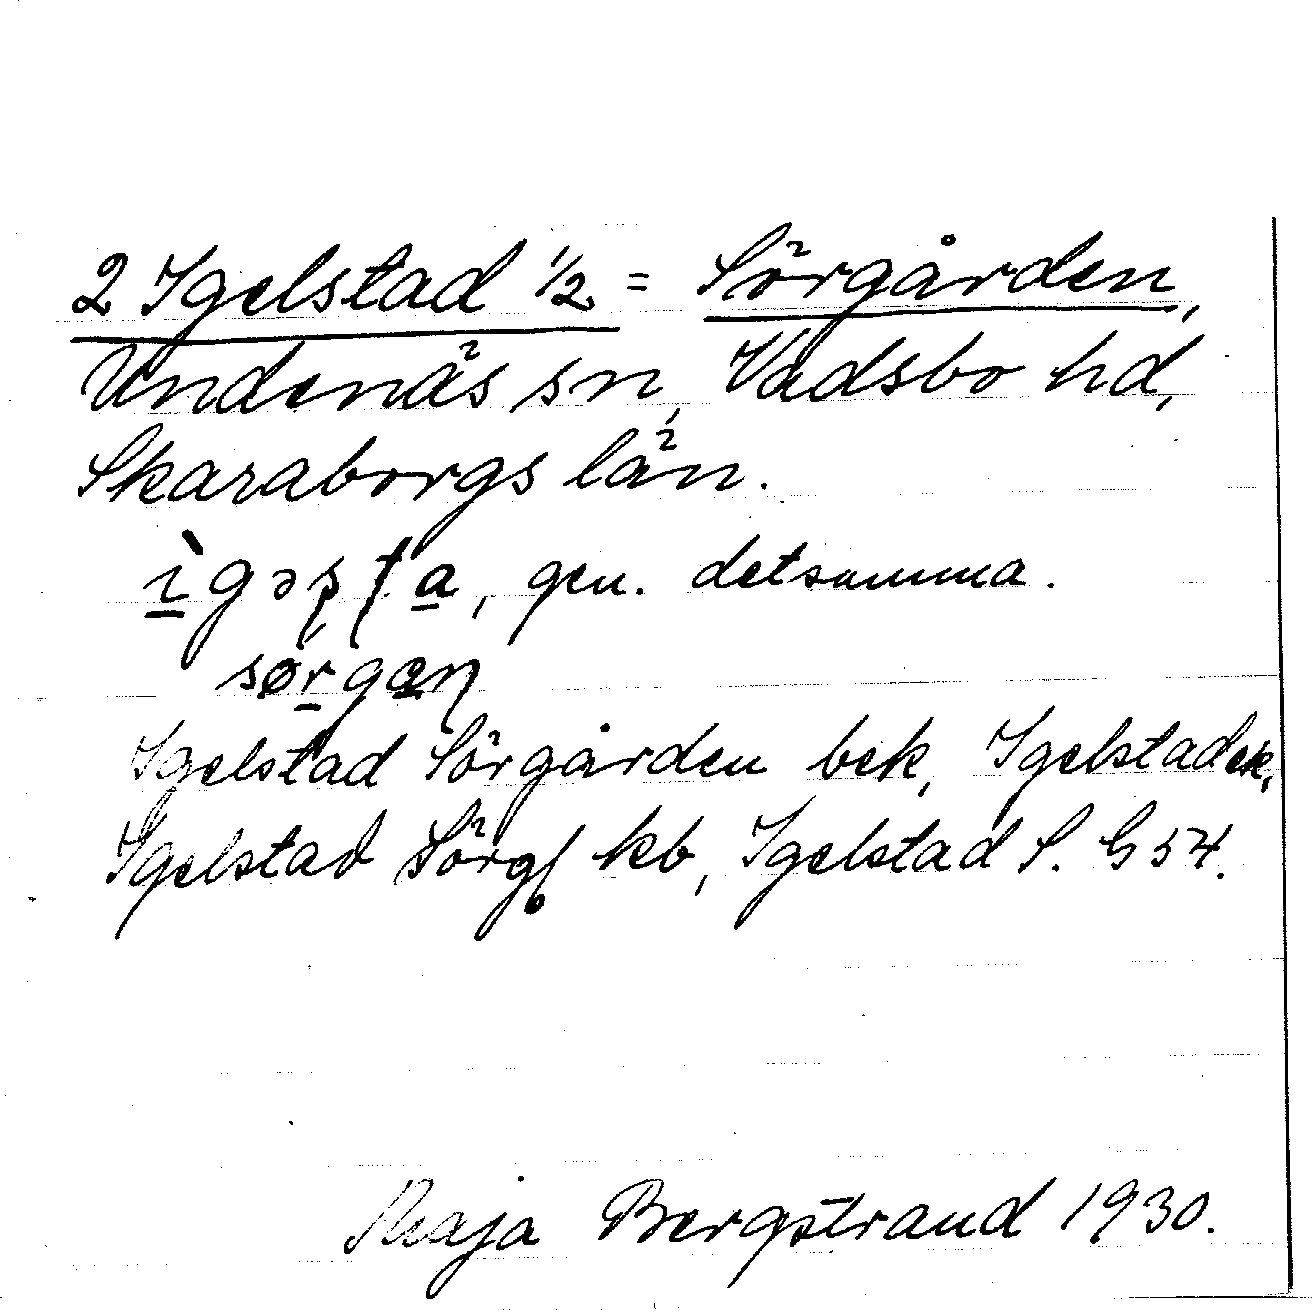 2 Igelstad ½ = Sörgården,
Undenäs sn, Vadsbo hd,
Skaraborgs län.
ìgəʂʈa, gen. detsamma.
sørgaɳ
Igelstad Sörgården bek, Igelstad ek,
Igelstad Sörg kb, Igelstad S. G 54.
Maja Bergstrand 1930.